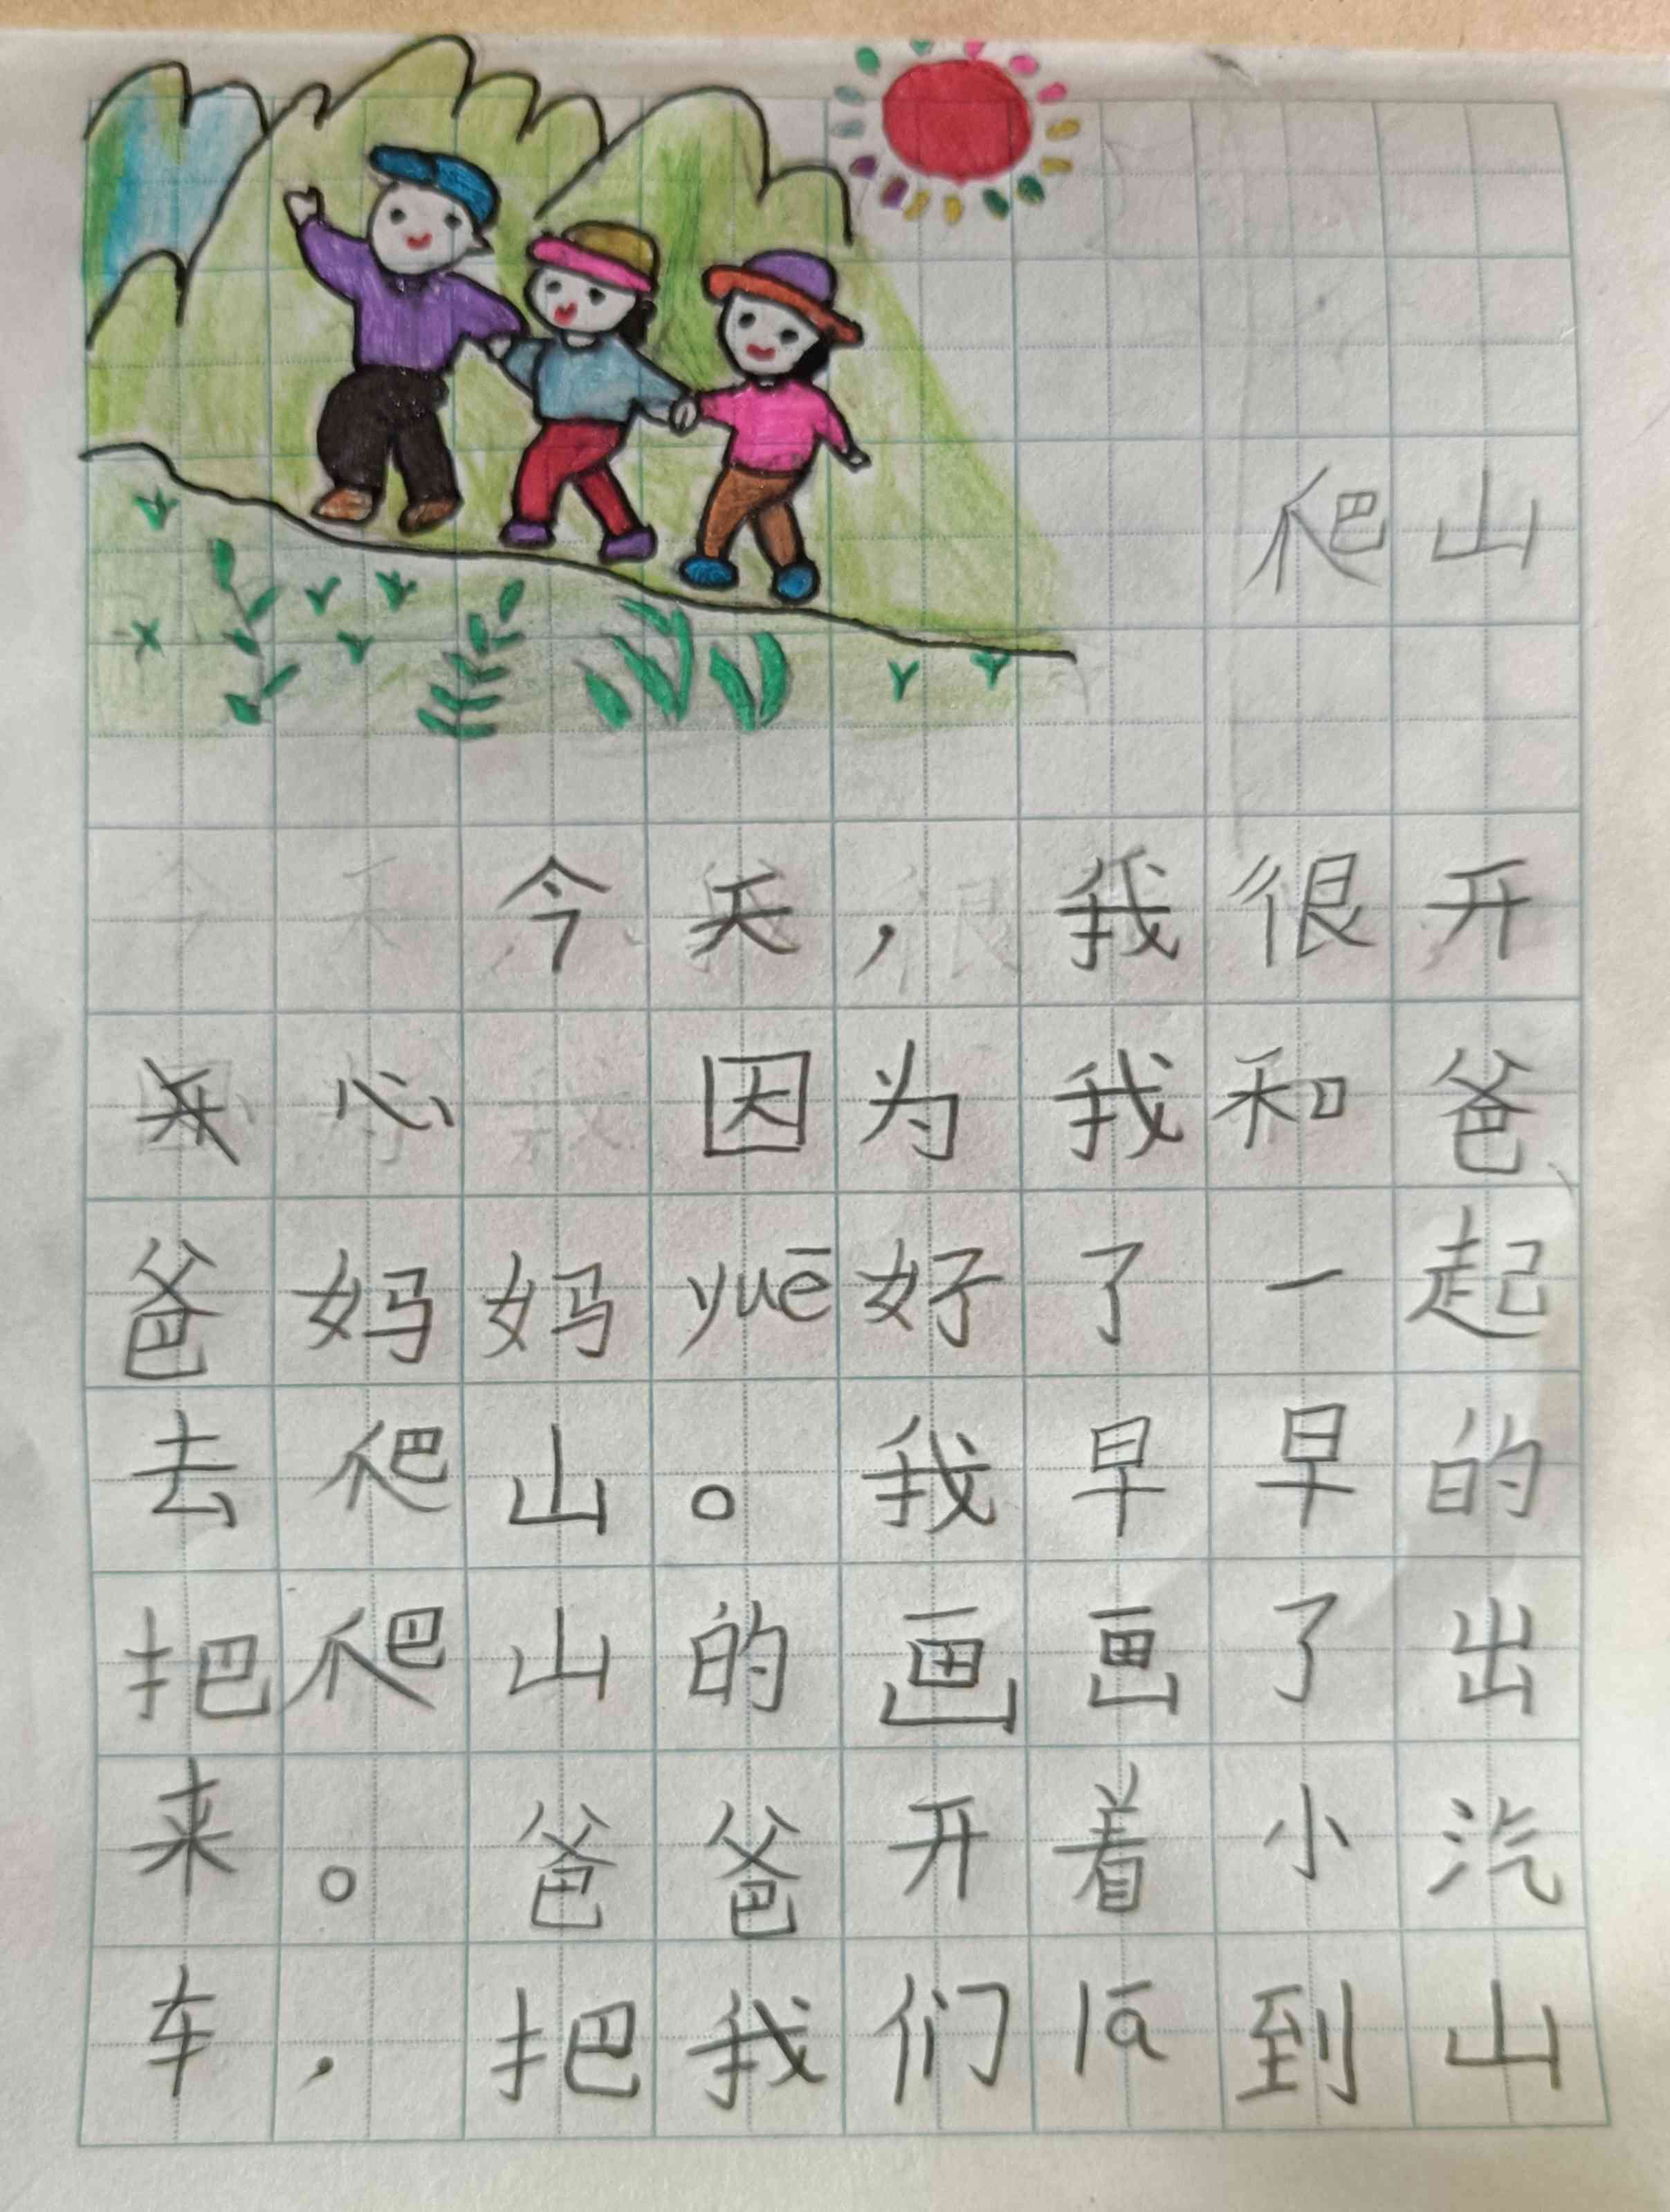 爬山
今天，我很开
心 因为我和爸
爸妈妈yuē好了一起
去爬山。我早早的
把爬山的画画了出
来。爸爸开着小汽
车，把我们lā到山